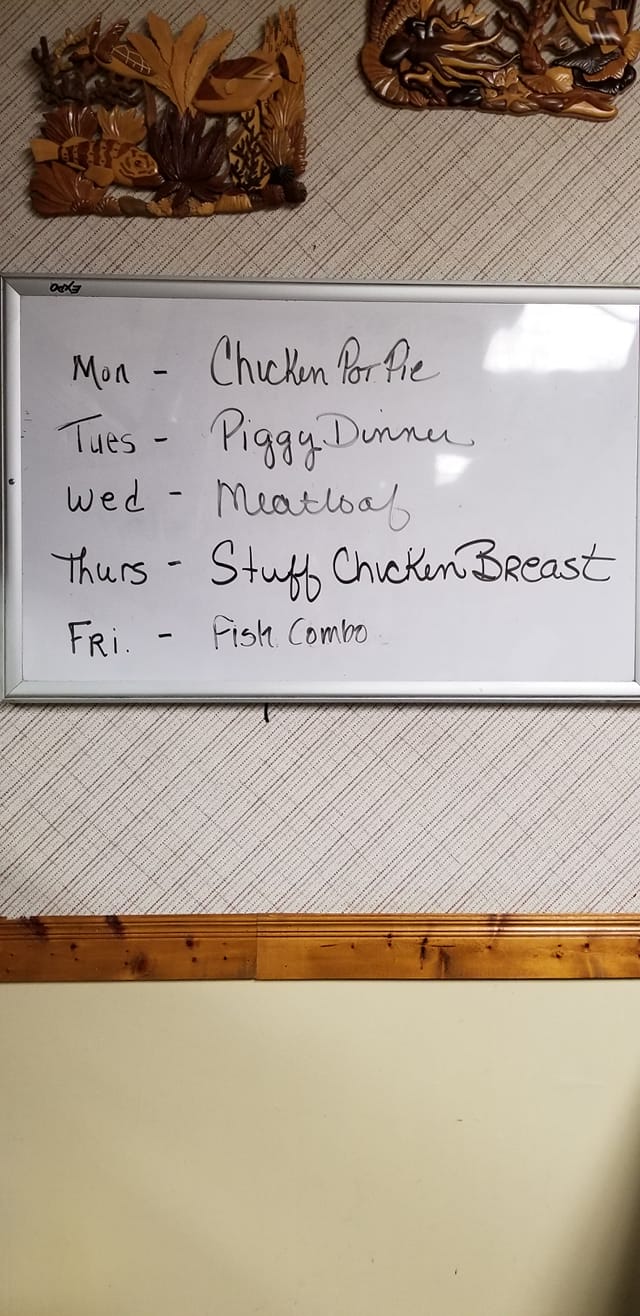 EXPO
Mon - Chicken Pot Pie
Tues - Piggy Dinner
Wed - Meatloaf
Thurs - Stuff Chicken Breast
FRi. - Fish Combo